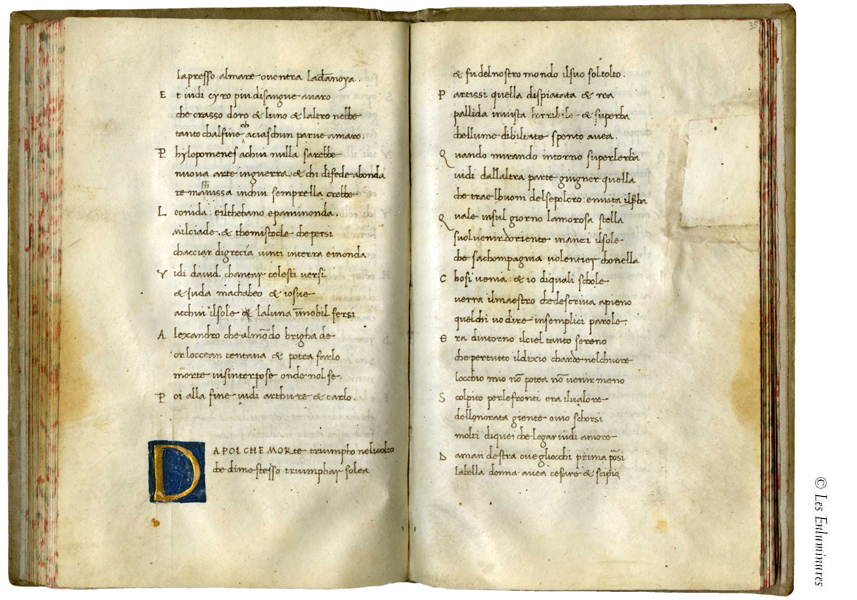 lapresso almare oventra ladanoya.
E t vidi cyro piu disangue avaro
che crasso doro & luno & laltro nebbe
tanto chalfine aciaschun parve amaro.
P hylopomenes achui nulla sarebbe
nuova arte inguerra & chi difede abonda
re massinissa inchui semprella crebbe
L eonida: eilthebano epaminonda.
Milciade. & themistocle che persi
chacciar digrecia vinti interra emonda
V idi david chantar celesti versi
& Juda machabeo & iosue
acchui ilsole & laluna immobil fersi
A lexandro che almondo brigha de
or loccean tentava & potea farlo
morte visinterpose onde nol fe.
P oi alla fine vidi arthure & carlo.
DAPOI CHE MORte triumpho nelvolto
che dime stesso triumphar solea
35
& fu delnostro mondo ilsuo sol tolto.
P artissi quella dispiatata & rea
pallida invista horribile & superba
chellume dibiltate spento avea.
Q uando mirando intorno superlerba
vidi dallaltra parte giugner quella
che trae lhuom delsepolcro: envita
Q uale insul giorno lamorosa stella
suol venir doriente inanti ilsole
che sachompagnia volentier chonella
C hosi venia & io diquali schole
verra ilmaestro che descriva apieno
quelchi vo dire insemplici parole.
E ra dintorno ilciel tanto sereno
che pertutto ildixio chardo nelchuore
locchio mio non potea non venir meno
S colpito perlefronti era ilvalore
dellonorata giente ovio schorsi
molti diquei che legar vidi amore
D aman destra ove gliocchi prima porsi
labella donna avea cesare & scipio
© Les Enluminures